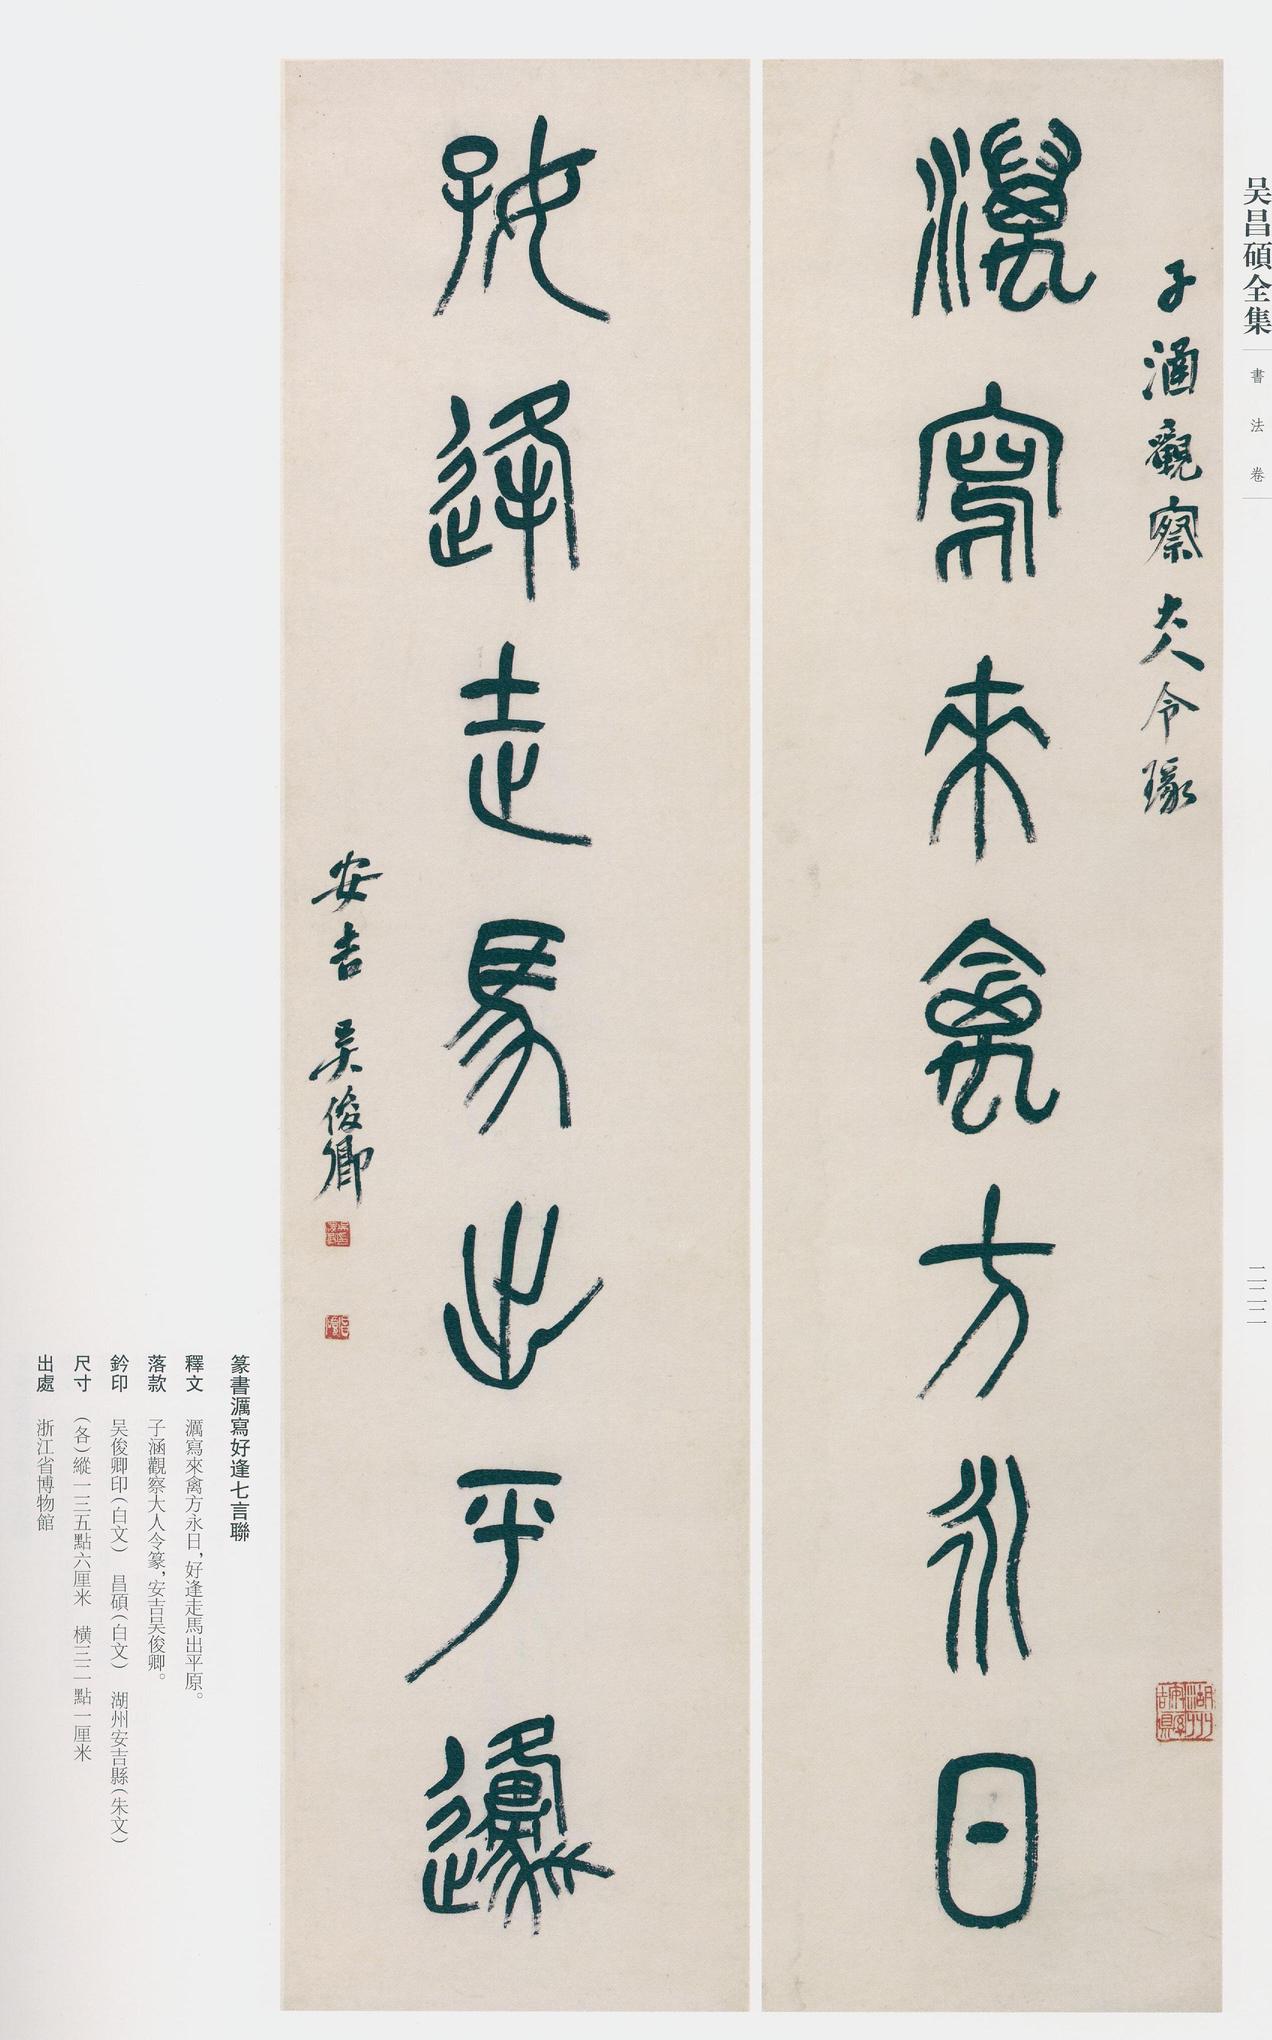 吴昌碩全集
書法卷
二二二
子涵觀察大人令瑑
濿寫來禽方永日
好逢走馬出平邍
安吉吳俊卿
篆書濿寫好逢七言聯
釋文 濿寫來禽方永日，好逢走馬出平原。
落款 子涵觀察大人令篆，安吉吴俊卿。
鈐印 吴俊卿印（白文） 昌碩（白文） 湖州安吉縣（朱文）
尺寸 （各）縱一三五點六厘米 橫三二點一厘米
出處 浙江省博物館
湖州安吉縣